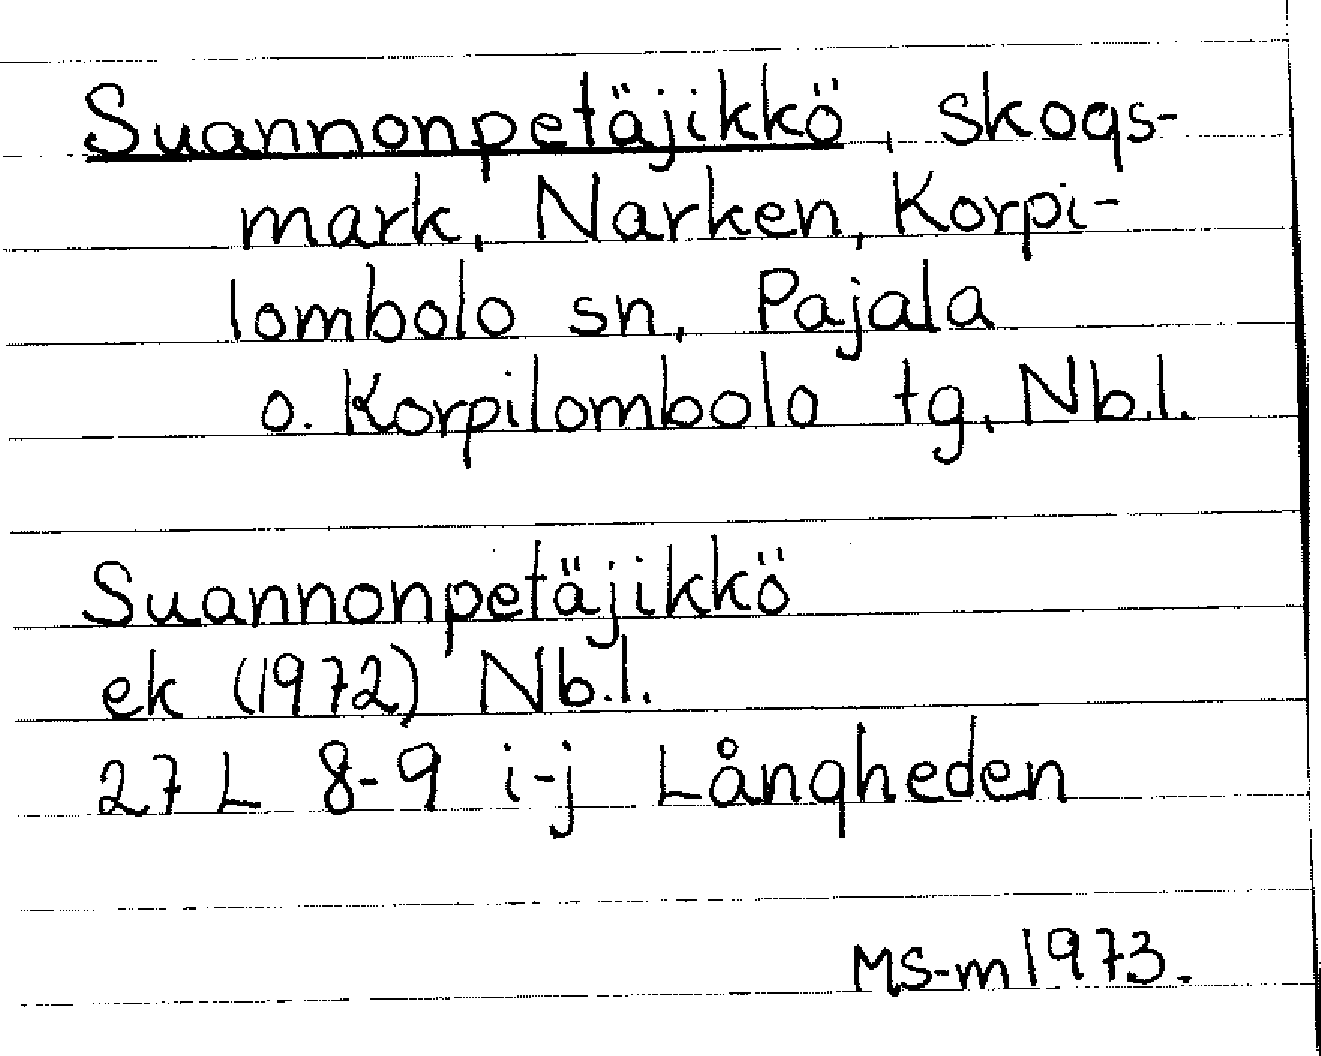 Suannonpetäjikkö, skogs-
mark, Narken, Korpi-
lombolo sn, Pajala
o. Korpilombolo tg, Nb.l.
Suannonpetäjikkö
ek (1972) Nb.l.
27 L 8-9 i-j Långheden
MS-m 1973.